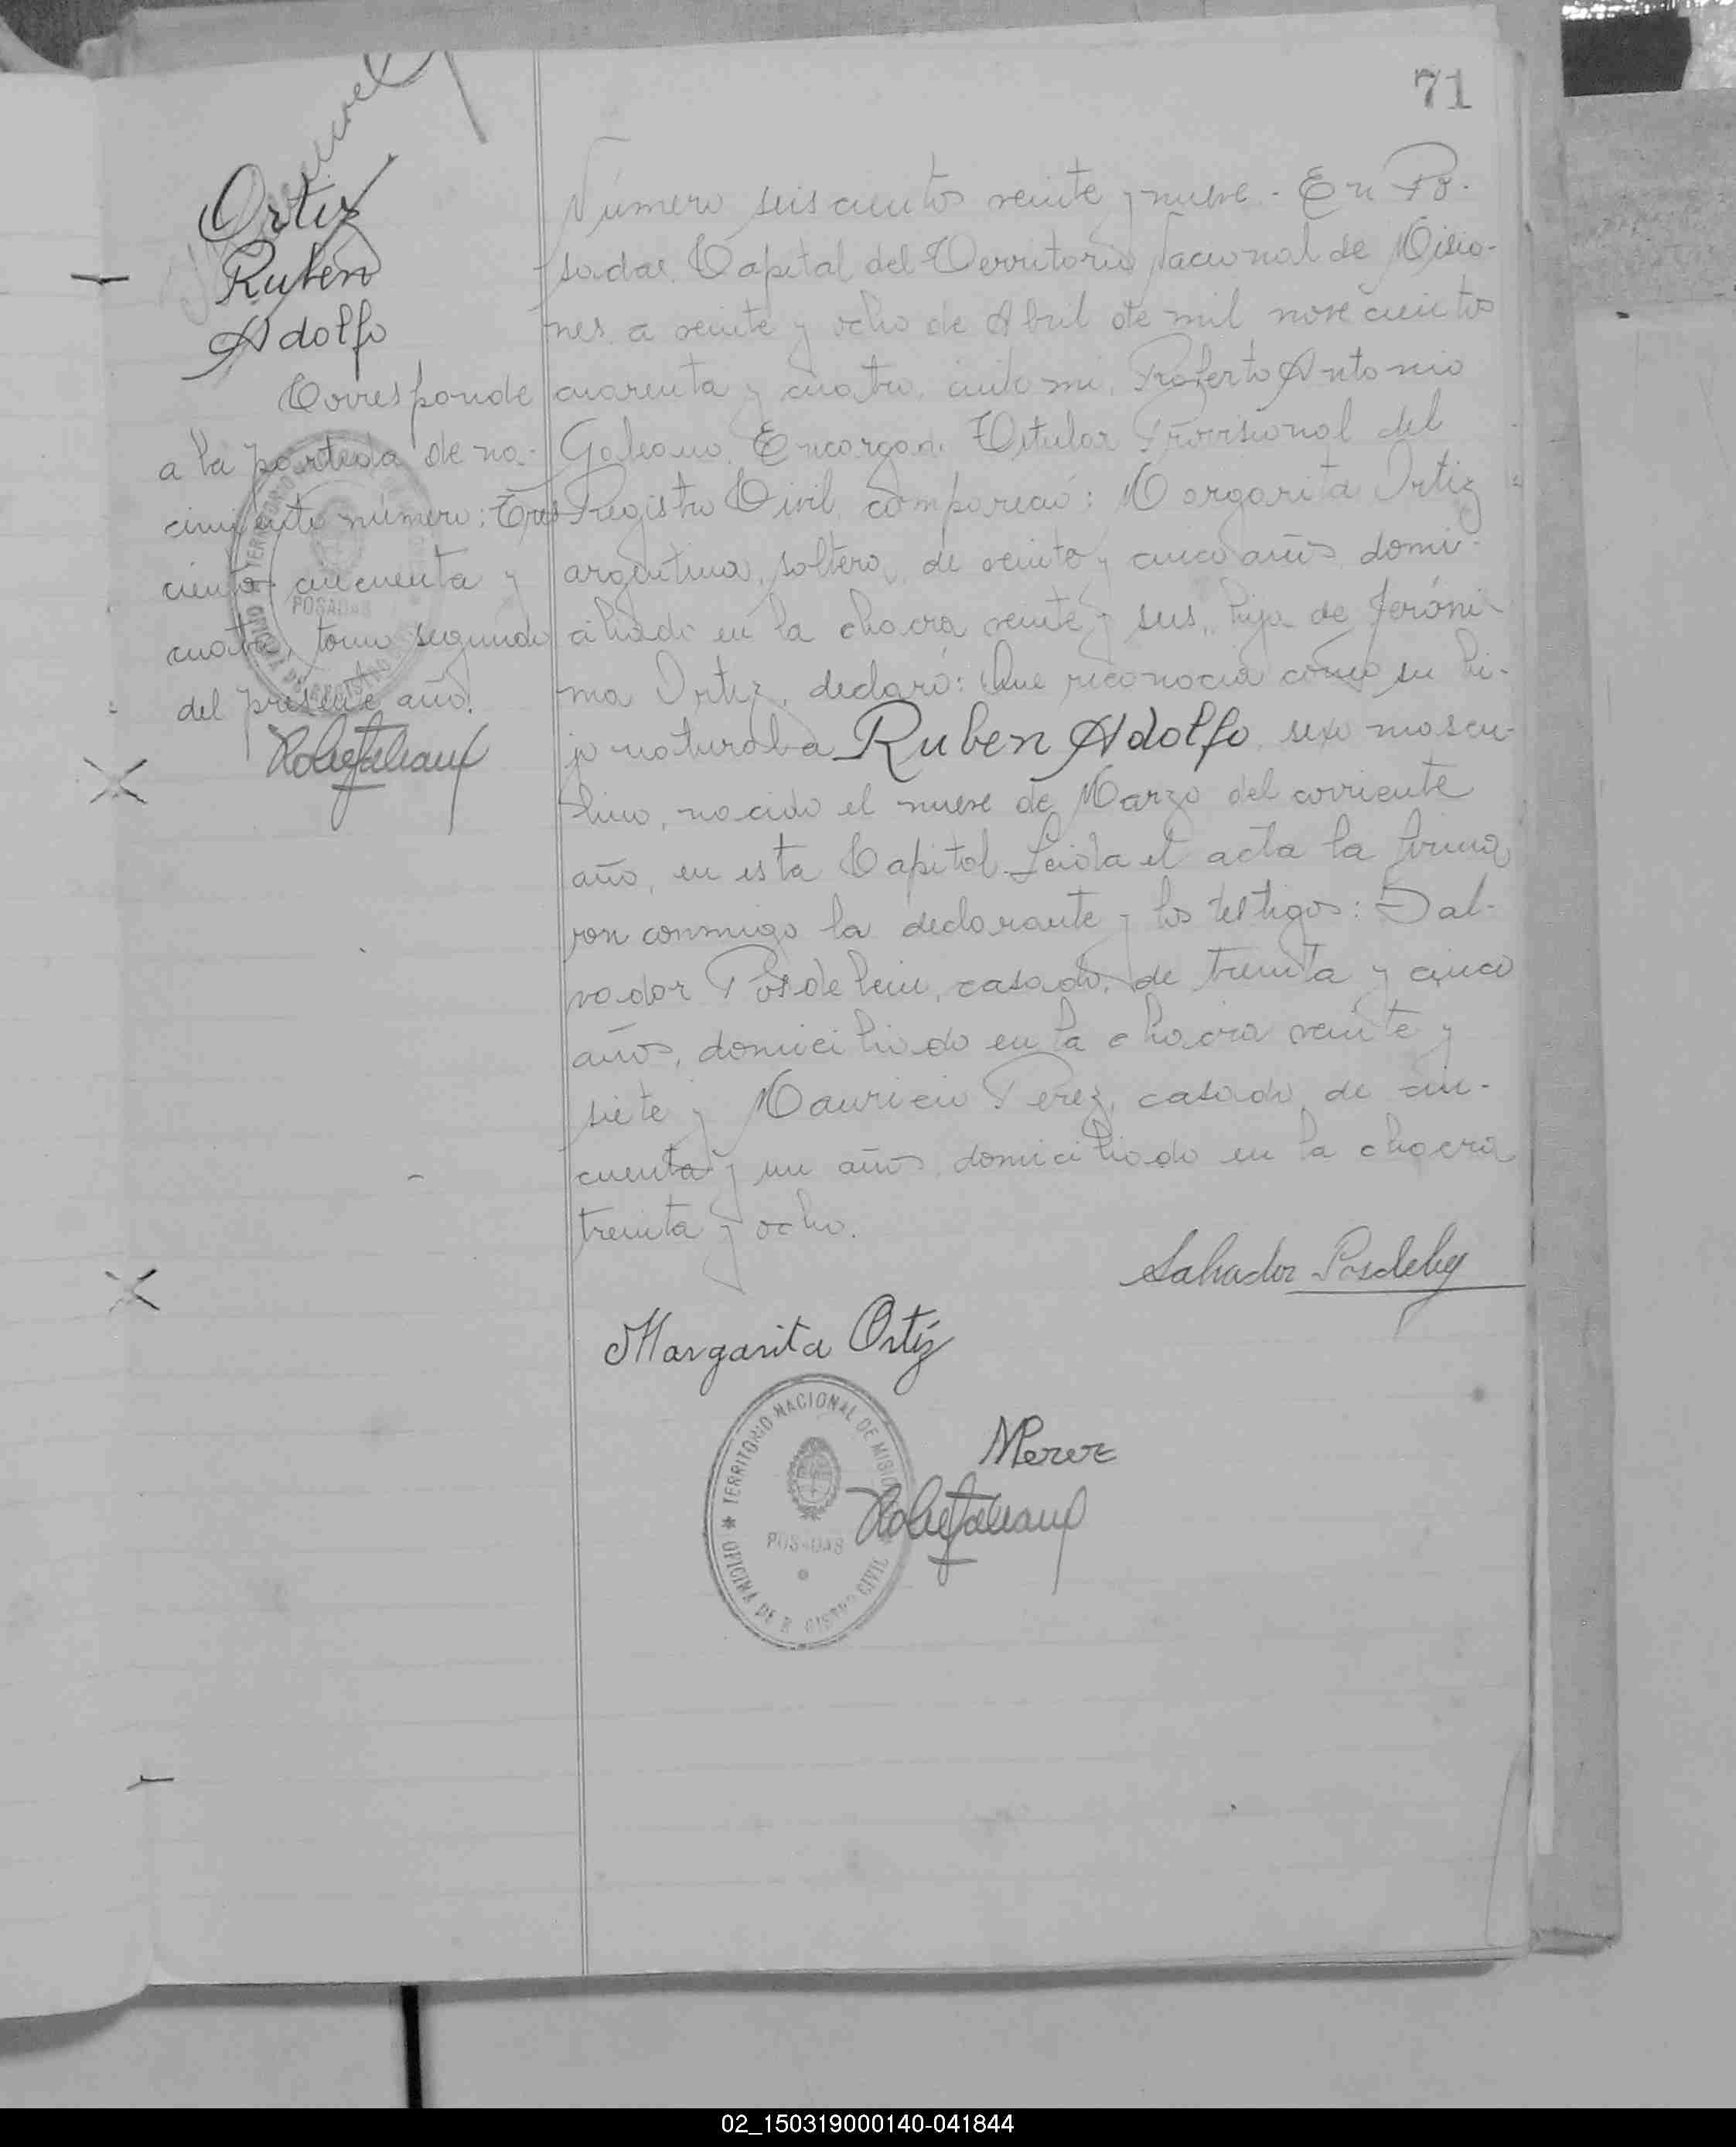 71
Ortiz
Ruben
Adolfo
Corresponde
a la partida de na-
cimiento número: Tres
cientos cincuenta y
cuatro, tomo segundo
del presente año.
Número seiscientos veinte y nueve.- En Po-
sadas Capital del Territorio Nacional de Misio-
nes a veinte y ocho de Abril de mil novecientos
cuarenta y cuatro, ante mi, Roberto Antonio
Galeano, Encargado Titular Provisional del
Registro Civil, compareció: Margarita Ortiz
argentina, soltera, de veinte y cinco años, domi-
ciliada en la chacra veinte y seis, hija de Jeróni-
ma Ortiz, declaró: Que reconocia como su hi-
jo natural a Ruben Adolfo, sexo mascu-
lino, nacido el nueve de Marzo del corriente
año, en esta Capital. Leida el acta la firma
ron conmigo la declarante y los testigos: Sal-
vador Posdeley, casado, de treinta y cinco
años, domiciliado en la chacra veinte y
siete y Mauricio Perez, casado, de cin-
cuenta y un años, domiciliado en la chacra
treinta y ocho.
Salvador Posdeley
Margarita Ortiz
MPerez
TERRITORIO NACIONAL DE MISIONES
POSADAS
OFICINA DE REGISTRO CIVIL
02_150319000140-041844